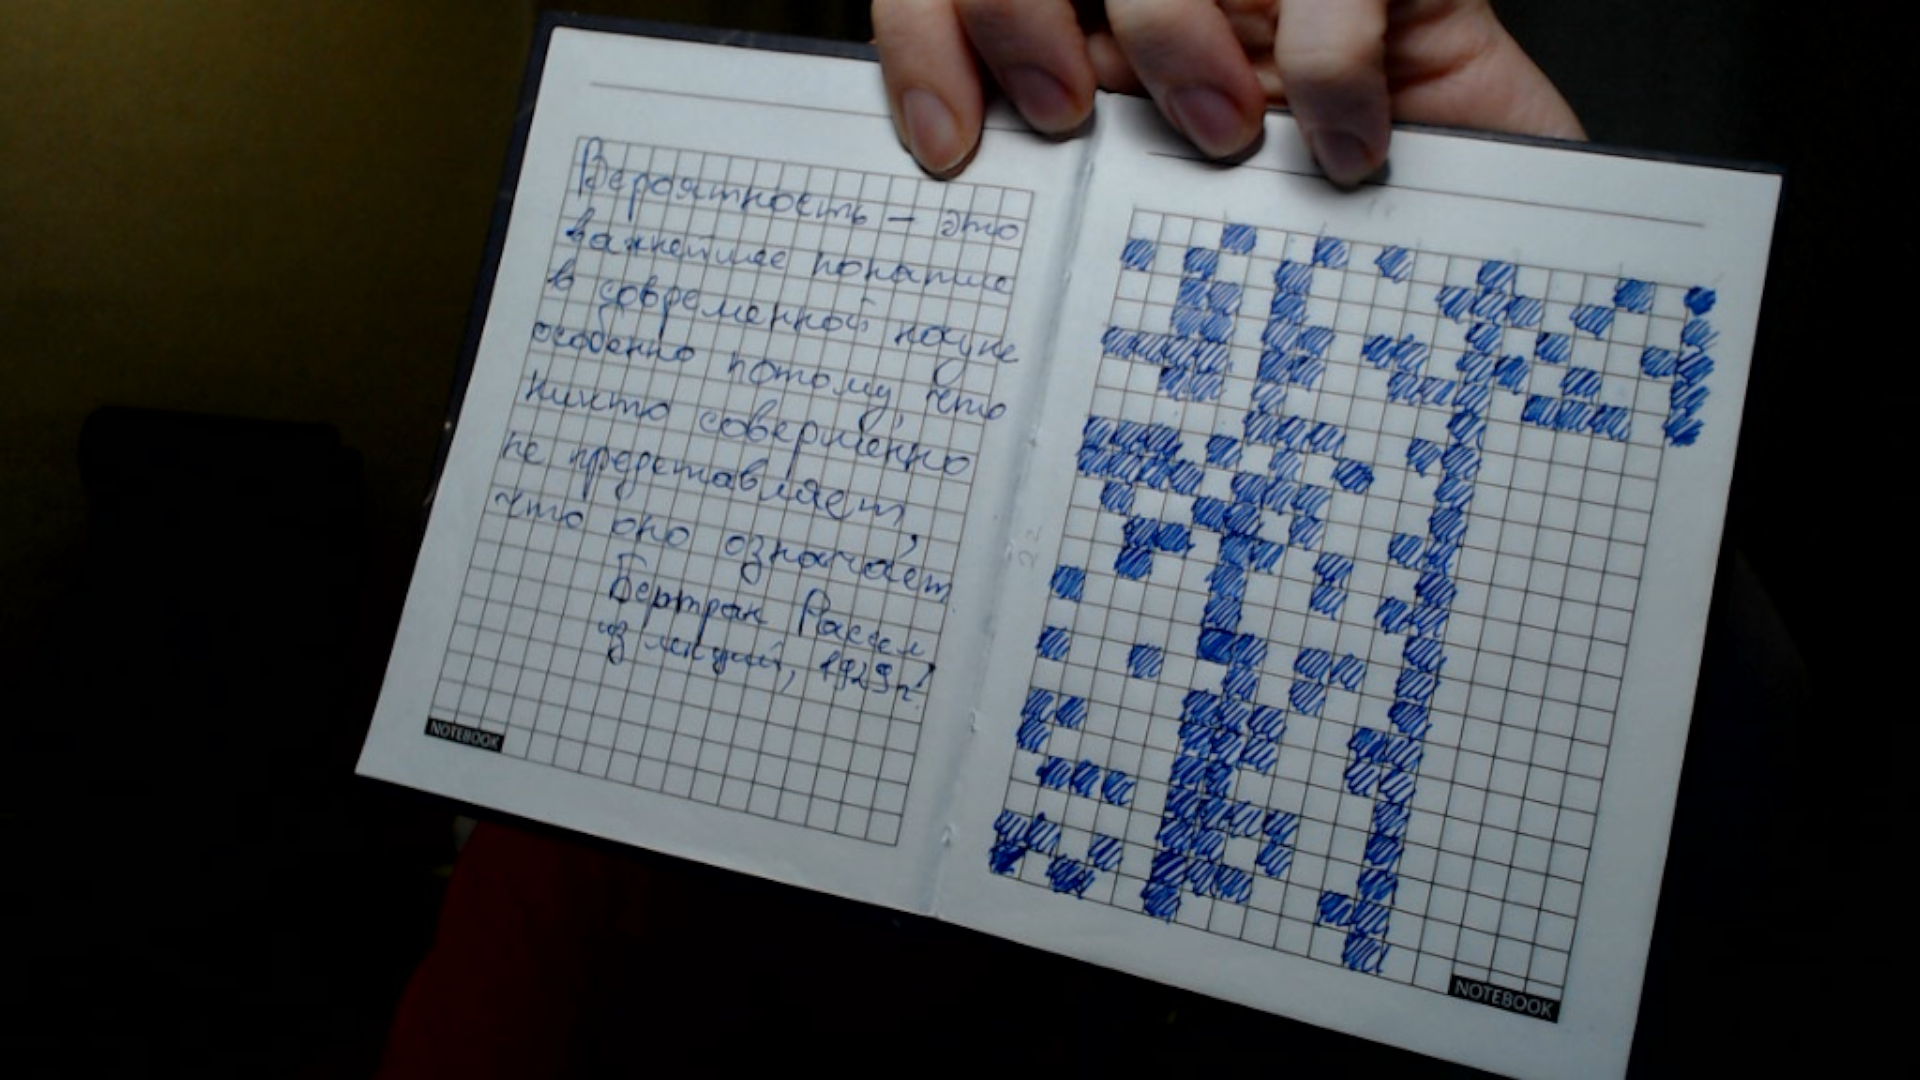 Вероятность – это
важнейшее понятие
в современной науке
особенно потому, что
никто совершенно
не представляет,
что оно означает
Бертран Рассел
из лекций, 1929 г.
NOTEBOOK
NOTEBOOK